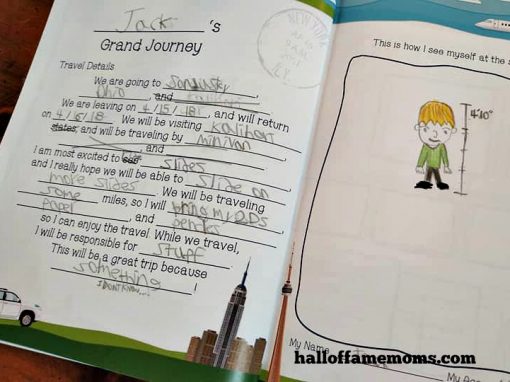 Jack 's
Grand Journey
NEW YORK
Travel Details
We are going to Sandusky,
Ohio, and
We are leaving on 4/15/18, and will return
on 4/16/18. We will be visiting Kalihari
states, and will be traveling by minivan
, and
I am most excited to see slides
and I really hope we will be able to slide on
more slides. We will be traveling
some miles, so I will bring my DS
paper, and pencils
so I can enjoy the travel. While we travel,
I will be responsible for stuff.
This will be a great trip because
something
I DONT KNOW...!
This is how I see myself at the
4'10"
My Name
halloffamemoms.com